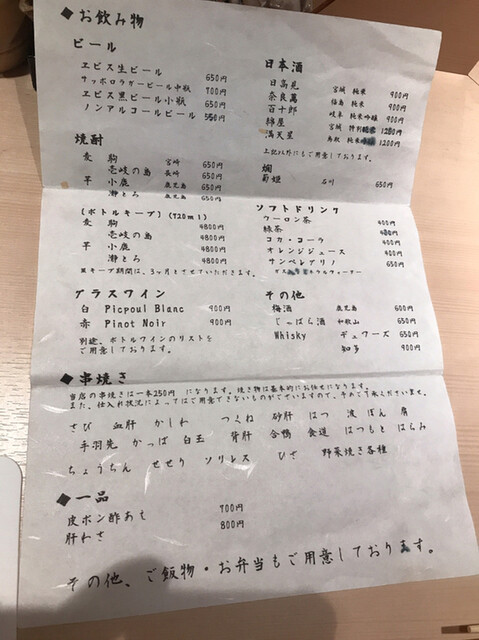 ◆お飲み物
ビール
ヱビス生ビール 650円
サッポロラガービール中瓶 700円
ヱビス黒ビール小瓶 650円
ノンアルコールビール 550円
日本酒
日高見 宮城 純米 900円
奈良萬 福島 純米 900円
百十郎 岐阜 純米吟醸 900円
綿屋 宮城 特別純米 1200円
満天星 鳥取 純米吟醸 1200円
上記以外にもご用意しております。
燗
菊姫 石川 650円
焼酎
麦 駒 宮崎 650円
壱岐の島 長崎 650円
芋 小鹿 鹿児島 650円
灘とろ 鹿児島 650円
(ボトルキープ) (720ml)
麦 駒 4800円
壱岐の島 4800円
芋 小鹿 4800円
灘とろ 4800円
※キープ期間は、3ヶ月とさせていただきます。
ソフトドリンク
ウーロン茶 400円
緑茶 400円
コカ・コーラ 400円
オレンジジュース 400円
サンペレグリノ 650円
ガス入りミネラルウォーター
グラスワイン
白 Picpoul Blanc 900円
赤 Pinot Noir 900円
別途、ボトルワインのリストを
ご用意しております。
その他
梅酒 鹿児島 600円
じゃばら酒 和歌山 650円
Whisky デュワーズ 650円
知多 900円
◆串焼き
当店の串焼きは一本250円 になります。焼き物は基本的にお任せになります。
また、仕入れ状況によってはご用意できないものがでていますので、予めご了承くださいませ。
さび 血肝 かしわ つくね 砂肝 はつ 波 ぼん 肩
手羽先 かっぱ 白玉 背肝 合鴨 食道 はつもと はらみ
ちょうちん せせり ソリレス ひざ 野菜焼き各種
◆一品
皮ポン酢あえ 700円
肝わさ 800円
その他、ご飯物・お弁当もご用意しております。